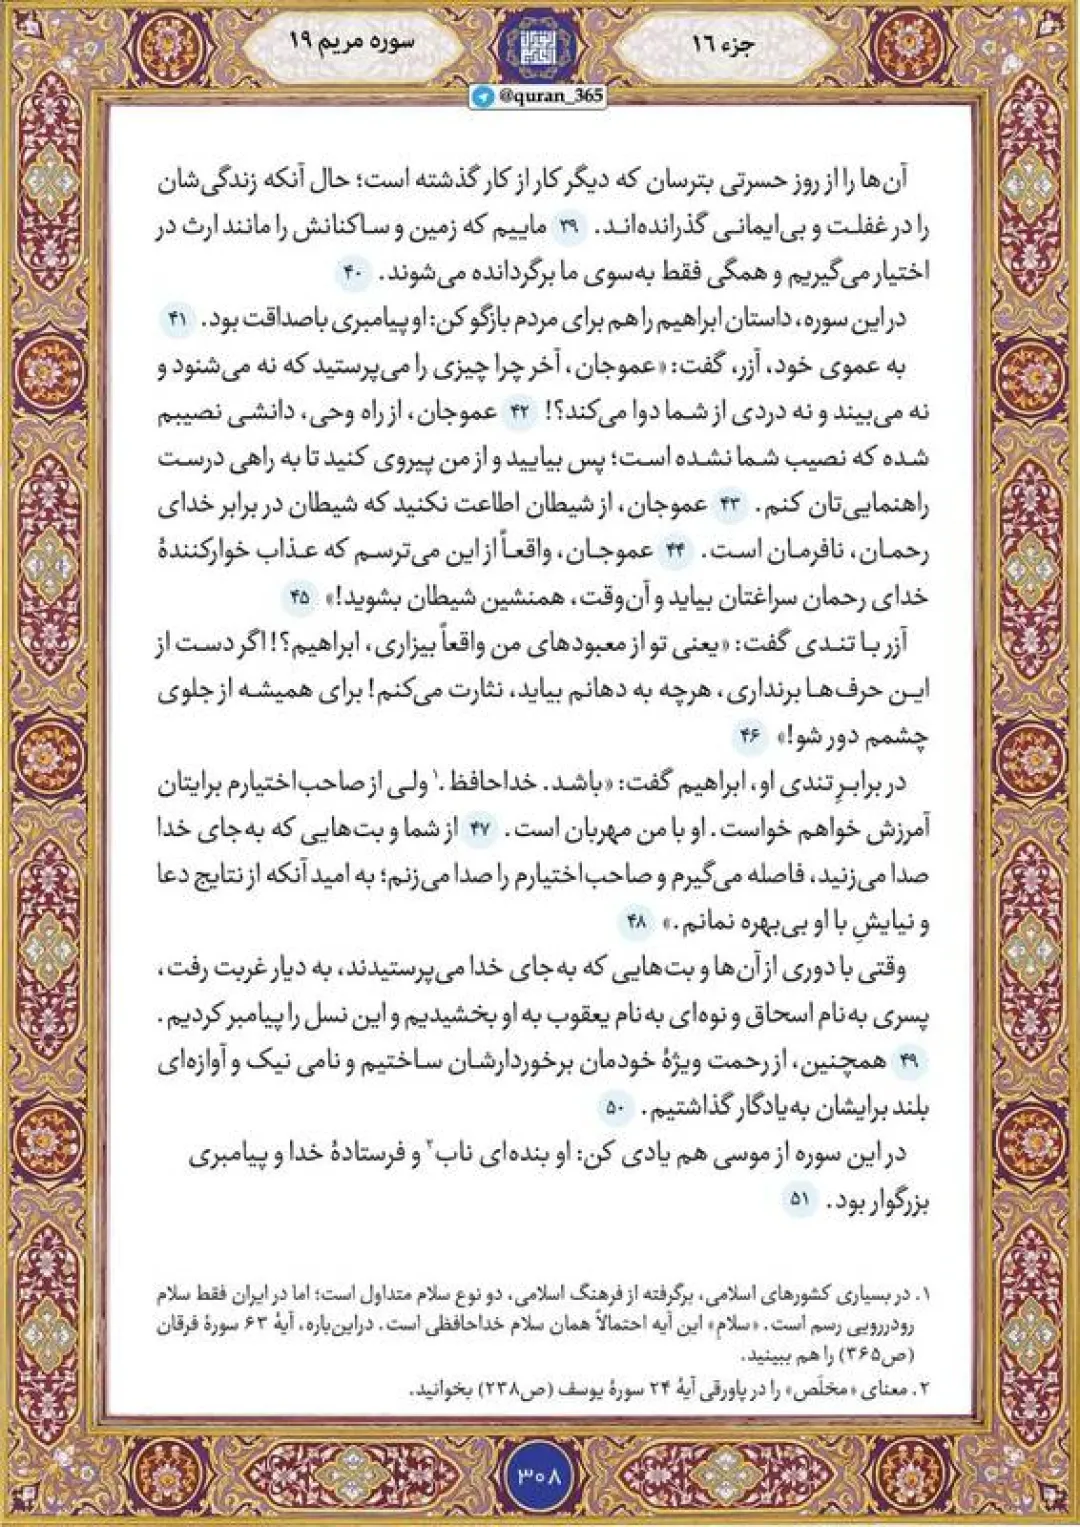 جزء ۱۶
سوره مریم ۱۹
@quran_365
آن‌ها را از روز حسرتی بترسان که دیگر کار از کار گذشته است؛ حال آنکه زندگی‌شان
را در غفلت و بی‌ایمانی گذرانده‌اند. ۳۹ ماییم که زمین و ساکنانش را مانند ارث در
اختیار می‌گیریم و همگی فقط به‌سوی ما برگردانده می‌شوند. ۴۰
در این سوره، داستان ابراهیم را هم برای مردم بازگو کن: او پیامبری باصداقت بود. ۴۱
به عموی خود، آزر، گفت: «عموجان، آخر چرا چیزی را می‌پرستید که نه می‌شنود و
نه می‌بیند و نه دردی از شما دوا می‌کند؟! ۴۲ عموجان، از راه وحی، دانشی نصیبم
شده که نصیب شما نشده است؛ پس بیایید و از من پیروی کنید تا به راهی درست
راهنمایی‌تان کنم. ۴۳ عموجان، از شیطان اطاعت نکنید که شیطان در برابر خدای
رحمان، نافرمان است. ۴۴ عموجان، واقعاً از این می‌ترسم که عذاب خوارکنندهٔ
خدای رحمان سراغتان بیاید و آن‌وقت، همنشین شیطان بشوید!» ۴۵
آزر با تندی گفت: «یعنی تو از معبودهای من واقعاً بیزاری، ابراهیم؟! اگر دست از
این حرف‌ها برنداری، هرچه به دهانم بیاید، نثارت می‌کنم! برای همیشه از جلوی
چشمم دور شو!» ۴۶
در برابرِ تندی او، ابراهیم گفت: «باشد. خداحافظ.۱ ولی از صاحب‌اختیارم برایتان
آمرزش خواهم خواست. او با من مهربان است. ۴۷ از شما و بت‌هایی که به‌جای خدا
صدا می‌زنید، فاصله می‌گیرم و صاحب‌اختیارم را صدا می‌زنم؛ به امید آنکه از نتایج دعا
و نیایشِ با او بی‌بهره نمانم.» ۴۸
وقتی با دوری از آن‌ها و بت‌هایی که به‌جای خدا می‌پرستیدند، به دیار غربت رفت،
پسری به‌نام اسحاق و نوه‌ای به‌نام یعقوب به او بخشیدیم و این نسل را پیامبر کردیم.
۴۹ همچنین، از رحمت ویژهٔ خودمان برخوردارشان ساختیم و نامی نیک و آوازه‌ای
بلند برایشان به‌یادگار گذاشتیم. ۵۰
در این سوره از موسی هم یادی کن: او بنده‌ای ناب۲ و فرستادهٔ خدا و پیامبری
بزرگوار بود. ۵۱
۱. در بسیاری کشورهای اسلامی، برگرفته از فرهنگ اسلامی، دو نوع سلام متداول است؛ اما در ایران فقط سلام
رودررویی رسم است. «سلامِ» این آیه احتمالاً همان سلام خداحافظی است. دراین‌باره، آیهٔ ۶۳ سورهٔ فرقان
(ص۳۶۵) را هم ببینید.
۲. معنای «مخلَص» را در پاورقی آیهٔ ۲۴ سورهٔ یوسف (ص۲۳۸) بخوانید.
۳۰۸